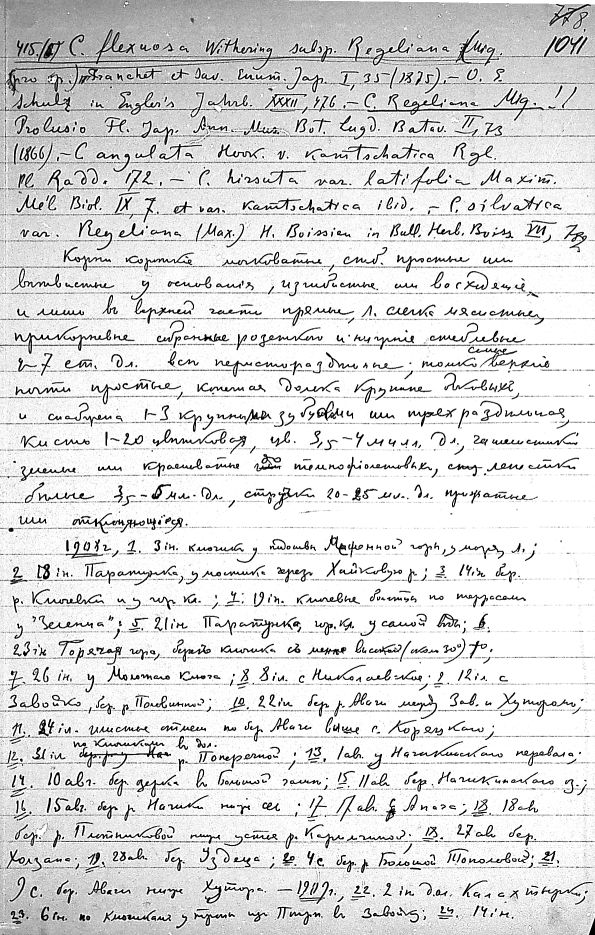 778.
1041
415/ C. flexuosa Withering subsp. Regeliana (Miq.
(pro sp.) Franchet et Sav. Enum. Jap. I, 35 (1875). - O. E.
Schulz in Engler's Jahrb. XXXII, 476. - C. Regeliana Miq. !!
Prolusio Fl. Jap. Ann. Mus. Bot. Lugd. Batav. II, 73
(1866). - C angulata Hook. v. Kamtschatica Rgl.
Pl Radd. 172. - C. hirsuta var. latifolia Maxim.
Mél Biol. IX, 7. et var. kamtschatica ibid. - C. silvatica
var. Regeliana (Max.) H. Boissieu in Bull. Herb. Boiss. VII, 789
Корни короткие мочковатые, стб. простые или
ветвистые у основания, изгибистые или восходящие,
и лишь в верхней части прямые, л. слегка мясистые,
прикорневые собранные розеткою и нижние стеблевые
2-7 ст. дл. все перистораздельные; только самые верхние
почти простые, конечная долека крупнее боковых,
и снабжена 1-3 крупными зубцами или трехраздельная,
кисть 1-20 цветковая, цв. 3,5-4 милл. дл., чашелистики
зеленые или красноватые до темнофиолетовых, лепестки
белые 3,5-5 мл. дл., стручки 20-25 мл. дл. прижатые
или отклоняющиеся.
1908 г., 1. 3 ін. ключики у подошвы горы, у моря л.;
2 13 ін. Паратунка, у мостика через Хайковую р; 3. 14 ін бер.
р. Ключевки и у гор. кл.; 4. 19 ін. ключевые болотца по террасам
у "Зеленца"; 5. 21 ін Паратунка, гор. кл. у самой воды; 6.
23 ін Горячая гора, берег ключика с высокой (около 30°) t°;
7. 26 ін. у Молотого Ключа; 8 8 іл. с Николаевское; 9. 12 іл. с
Завойко, бер. р Половинной; 10. 22 іл бер р Авачи между Зав. и Хутором;
11. 24 іл. илистые отмели по бер. Авачи выше с. Коряцкого;
12. 31 іл по ключикам в дол. р. Поперечной; 13. 1 ав. у Начикинского перевала;
14. 10 авг. бер. озерка в Большой; 15 11 ав бер. Начикинского оз.;
16. 15 авг. бер р Начики ниже сел; 17 17 ав. Апача; 18. 18 ав
бер. р. Плотниковой ниже устья р. Карымчиной; 18. 27 ав бер.
Холзана; 19. 28 ав. бер. Уздеца; 20. 4 с. бер. р Большой Тополовой; 21.
9 с. бер. Авачи ниже Хутора. - 1909 г., 22. 2 ін дол. Калахтырки;
23. 6 ін. по ключикам у тропы из Птрп. в Завойко; 24. 14 ін.